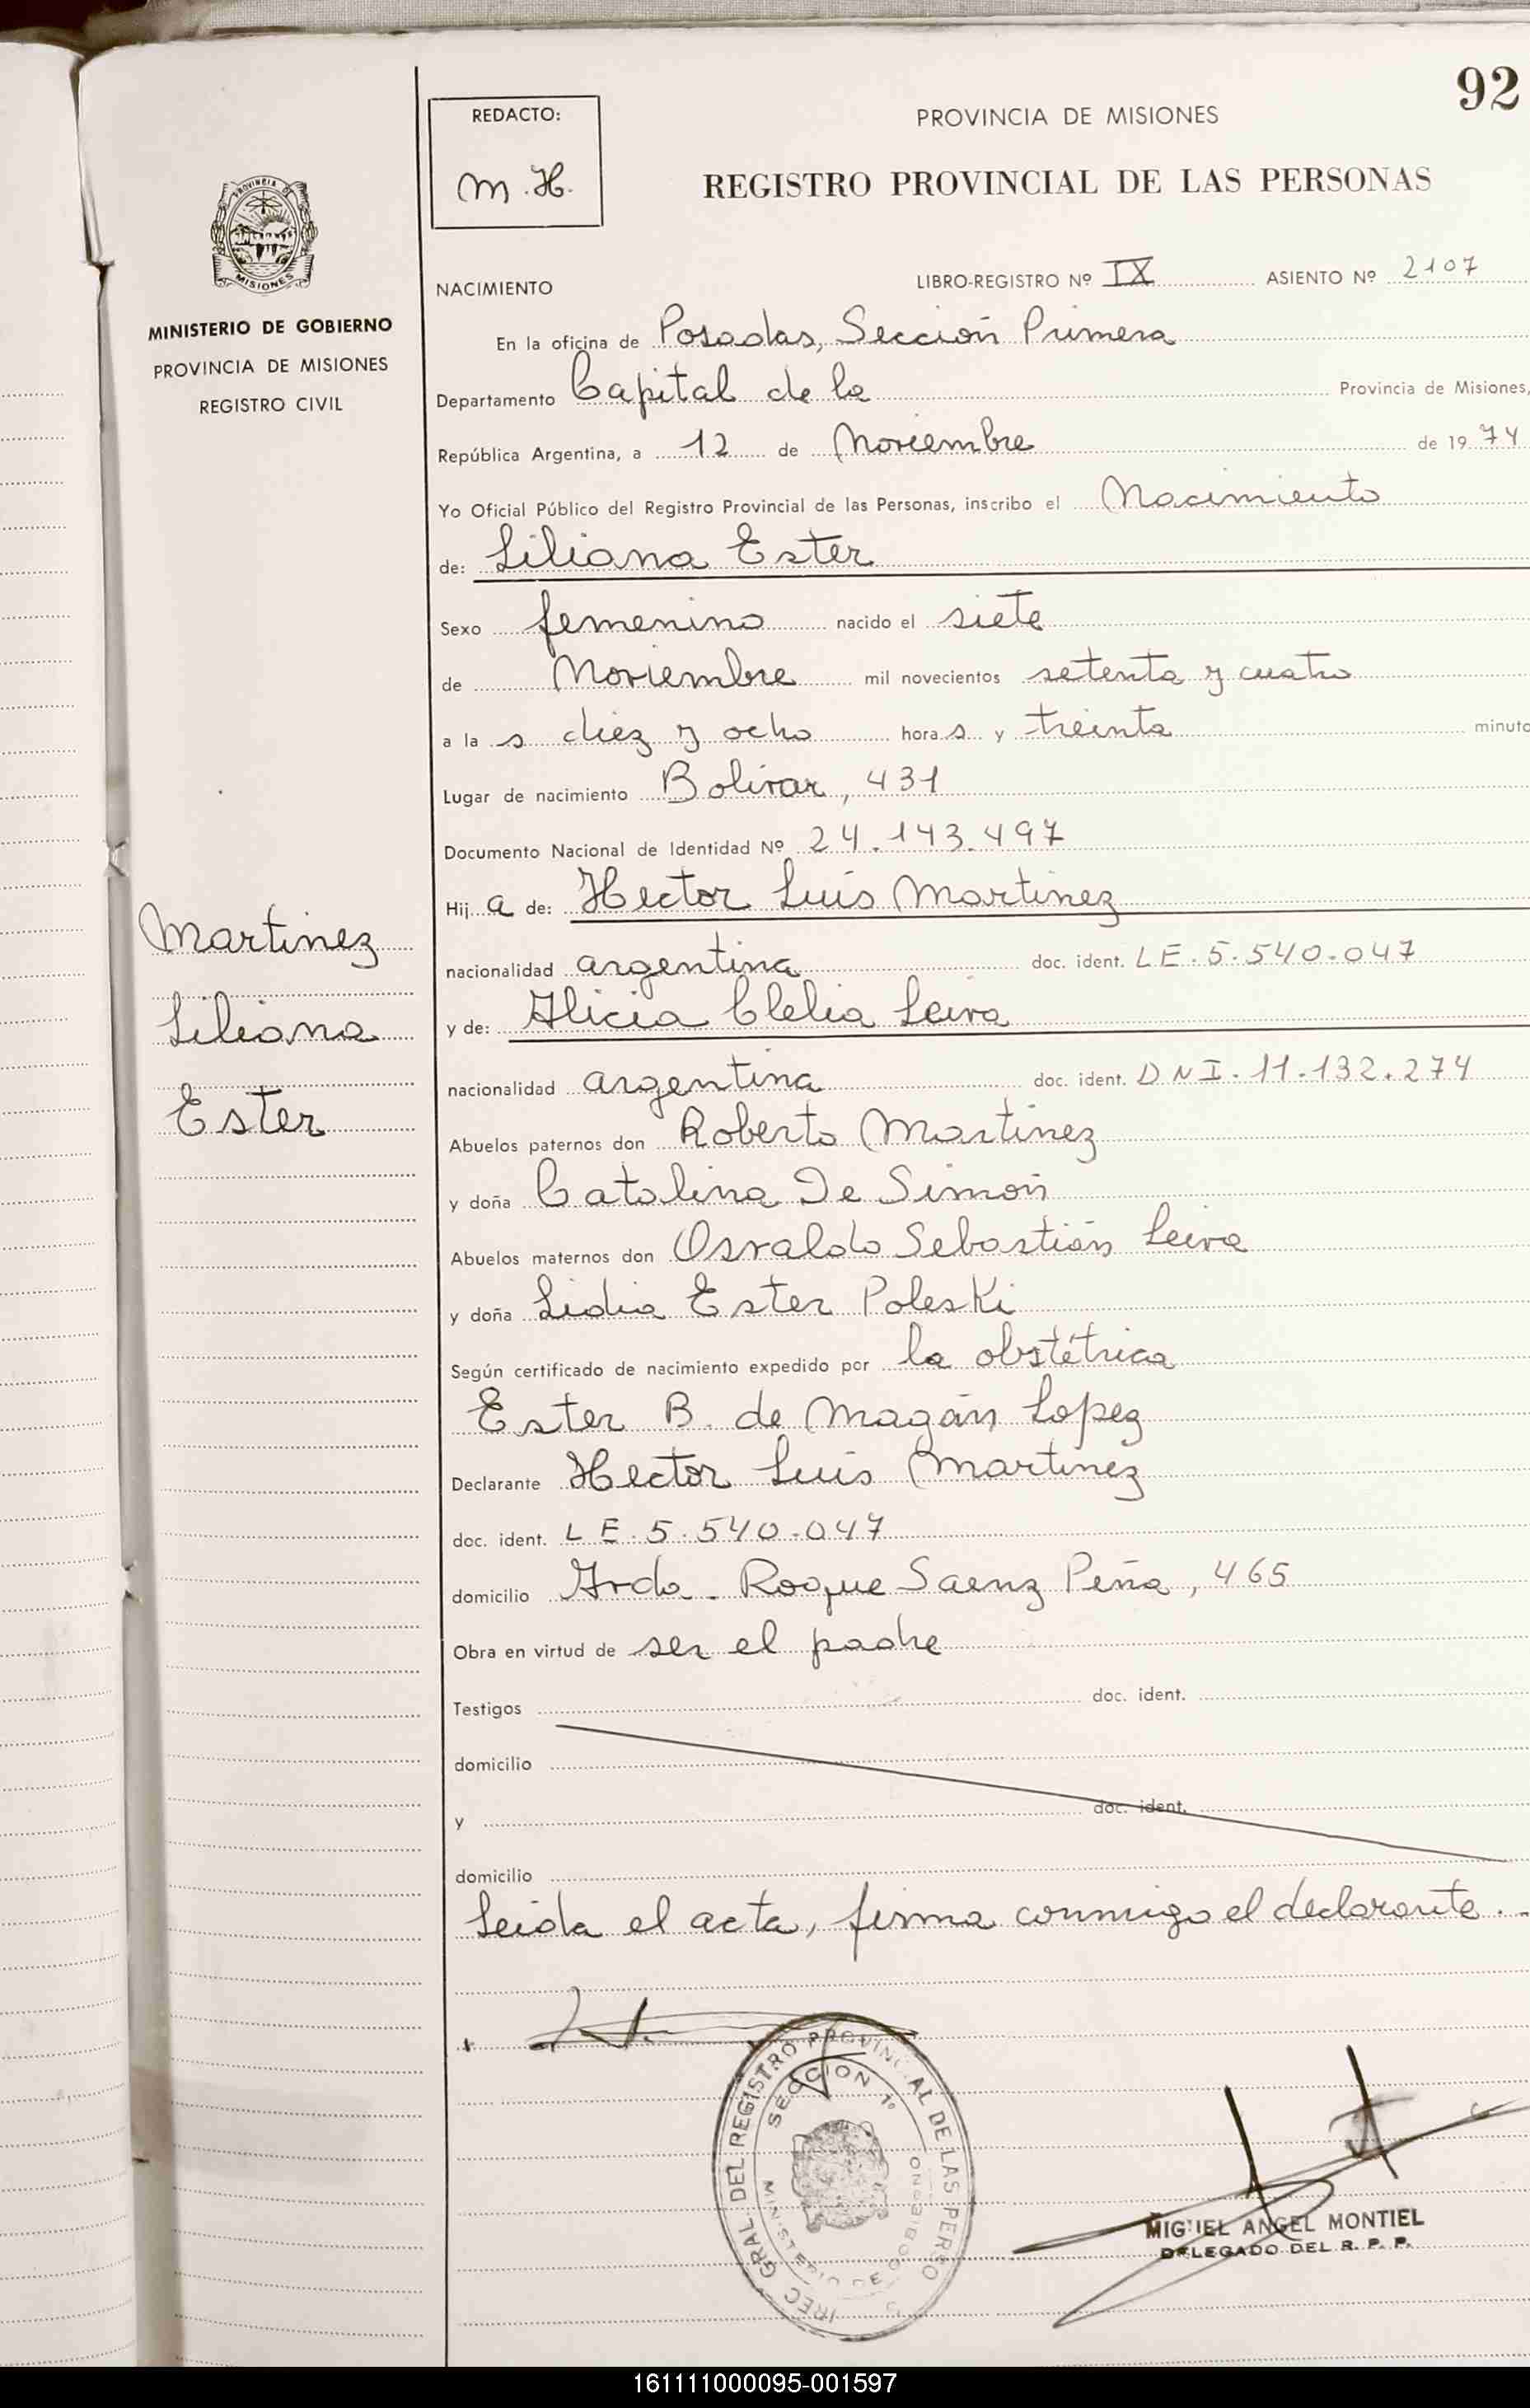 92
REDACTO:
M. H.
PROVINCIA DE MISIONES
REGISTRO PROVINCIAL DE LAS PERSONAS
PROVINCIA DE
MISIONES
MINISTERIO DE GOBIERNO
PROVINCIA DE MISIONES
REGISTRO CIVIL
NACIMIENTO
LIBRO-REGISTRO Nº IX ASIENTO Nº 2107
En la oficina de Posadas, Sección Primera
Departamento Capital de la Provincia de Misiones,
República Argentina, a 12 de Noviembre de 1974
Yo Oficial Público del Registro Provincial de las Personas, inscribo el Nacimiento
de: Liliana Ester
Sexo femenino nacido el siete
de Noviembre mil novecientos setenta y cuatro
a la s diez y ocho hora s y treinta minuto
Lugar de nacimiento Bolívar, 431
Documento Nacional de Identidad Nº 24.143.497
Hij a de: Hector Luis Martinez
nacionalidad argentina doc. ident. LE. 5.540.047
y de: Alicia Clelia Leiva
nacionalidad argentina doc. ident. DNI. 11.132.274
Abuelos paternos don Roberto Martinez
y doña Catalina De Simón
Abuelos maternos don Osvaldo Sebastián Leiva
y doña Lidia Ester Poleski
Según certificado de nacimiento expedido por la obstétrica
Ester B. de Magán Lopez
Declarante Hector Luis Martinez
doc. ident. LE. 5.540.047
domicilio Avda. Roque Saenz Peña, 465
Obra en virtud de ser el padre
Testigos doc. ident.
domicilio
y doc. ident.
domicilio
Leída el acta, firma conmigo el declarante.-
Martinez
Liliana
Ester
DIREC GRAL. DEL REGISTRO PROVINCIAL DE LAS PERSO
SECCION 1º
MINISTERIO DE GOBIERNO
MIGUEL ANGEL MONTIEL
DELEGADO DEL R. P. P.
161111000095-001597